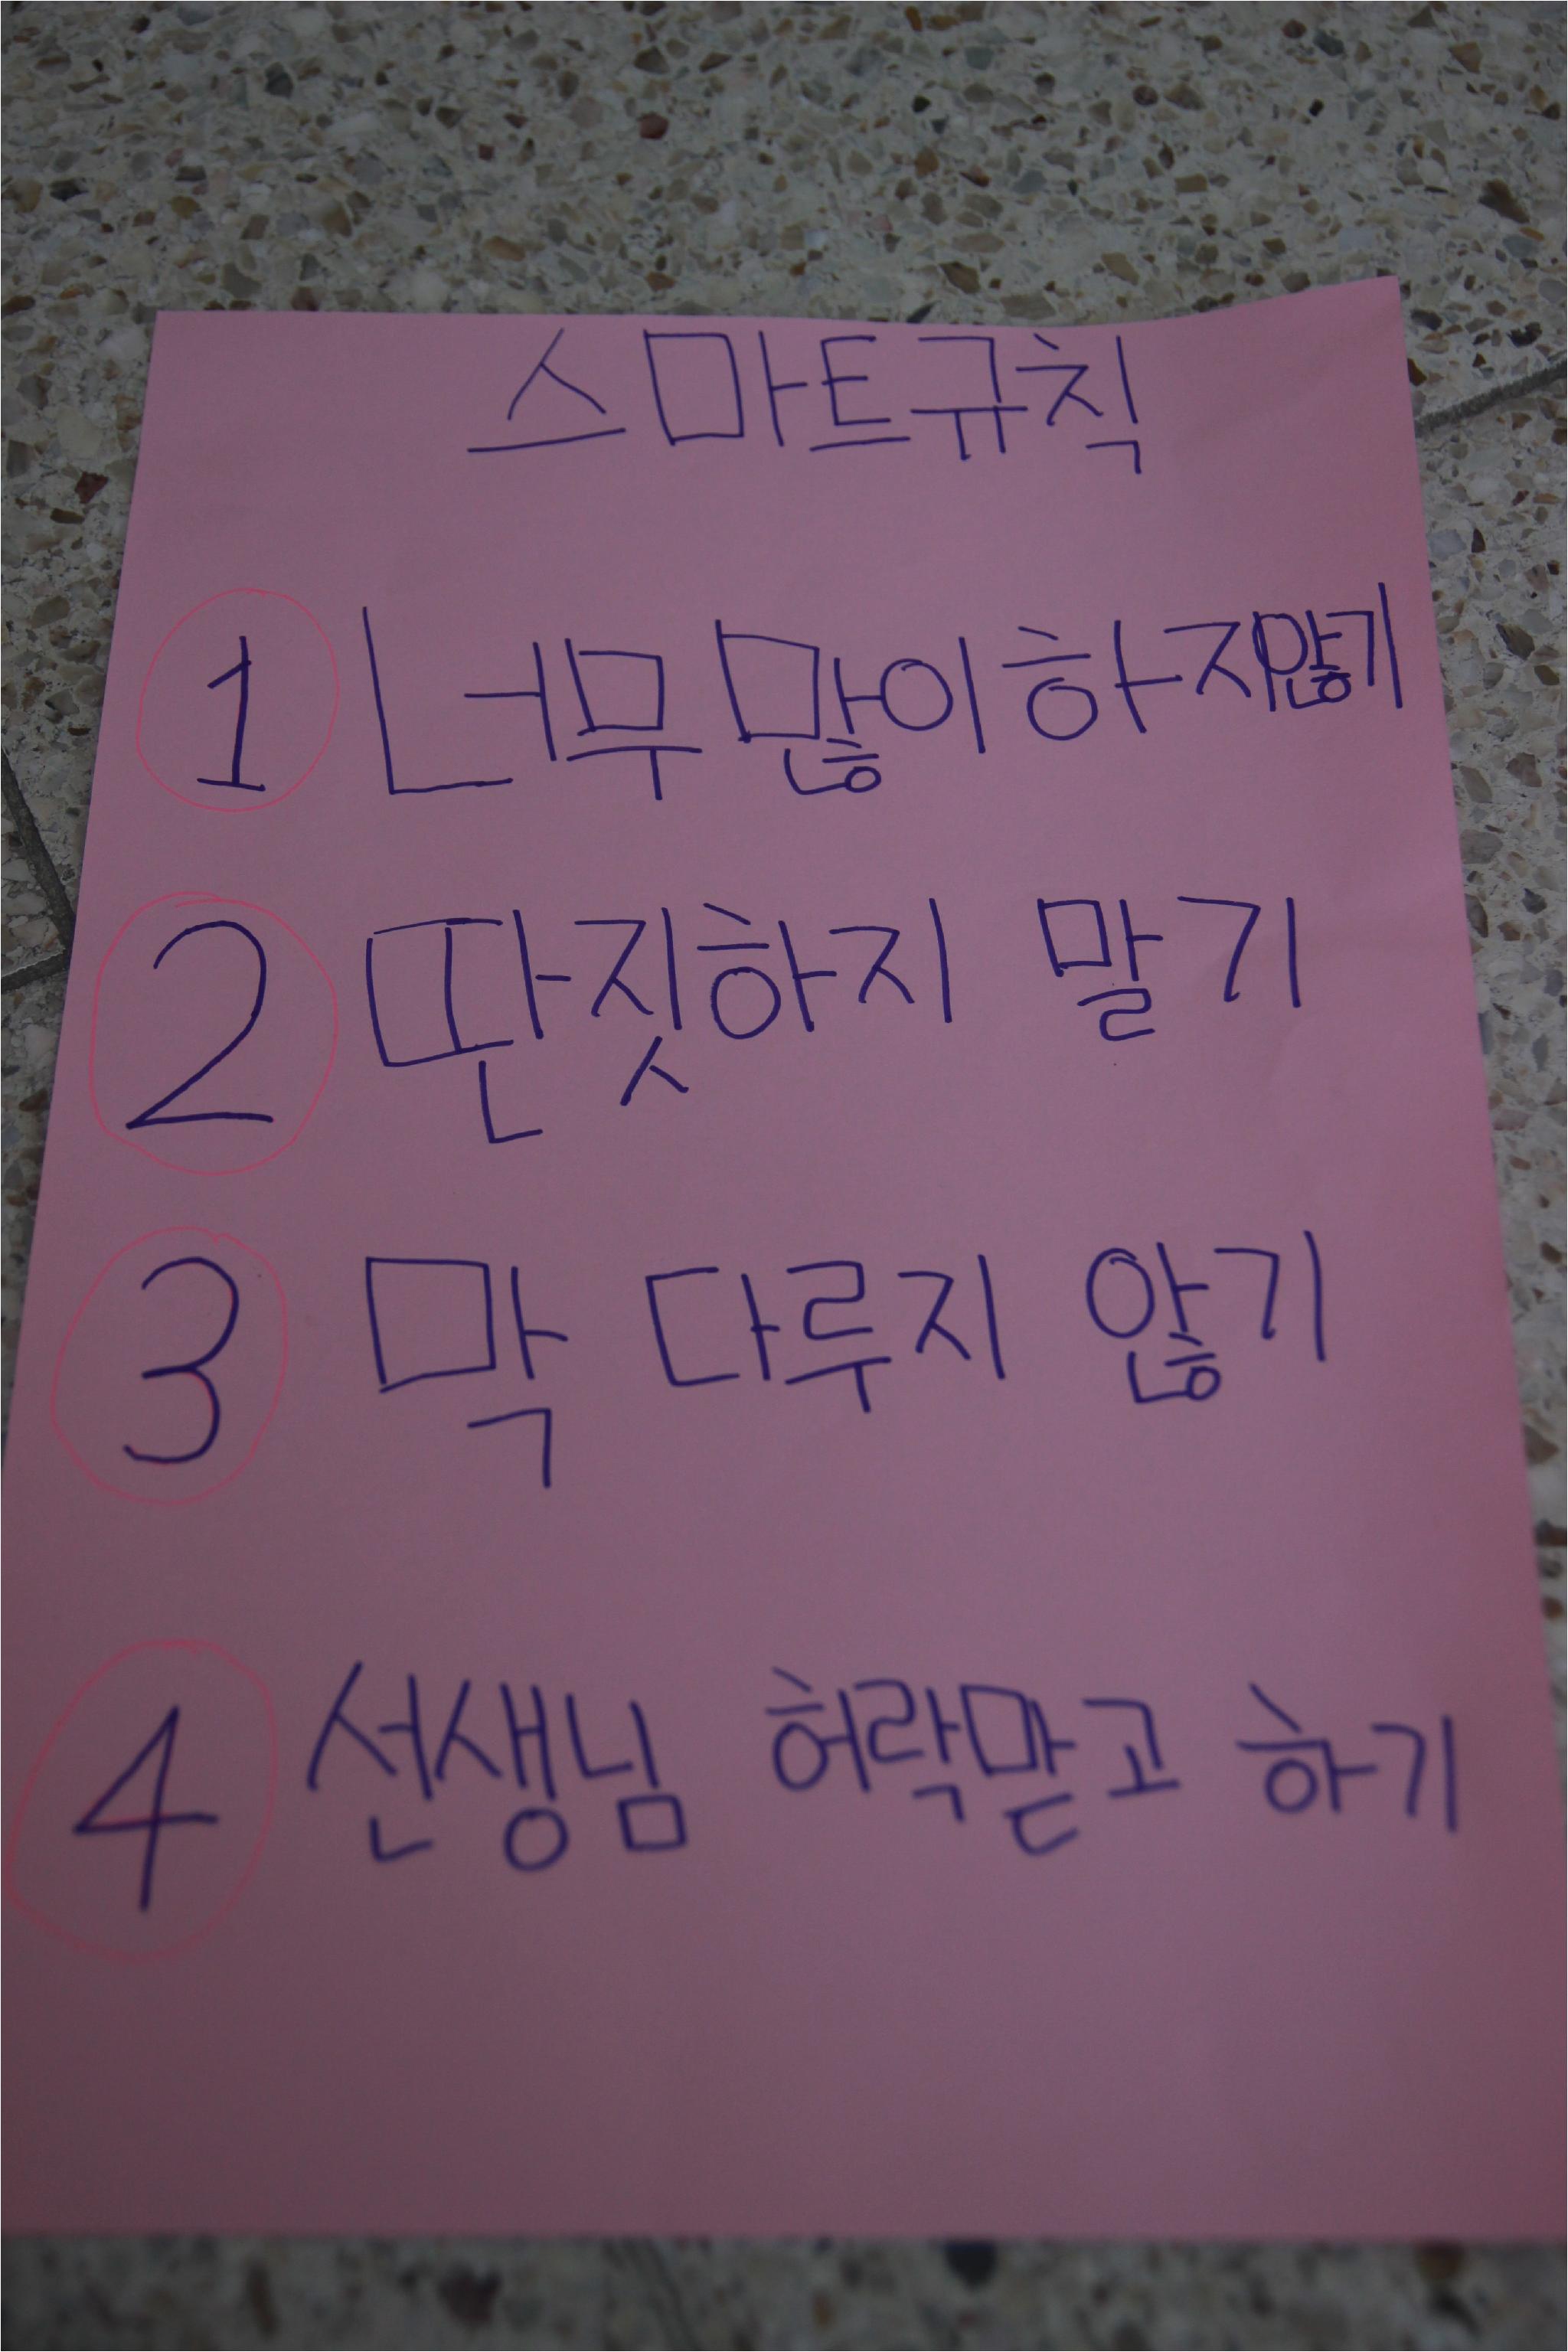 스마트규칙
1 너무 많이 하지않기
2 딴짓하지 말기
3 막 다루지 않기
4 선생님 허락맏고 하기